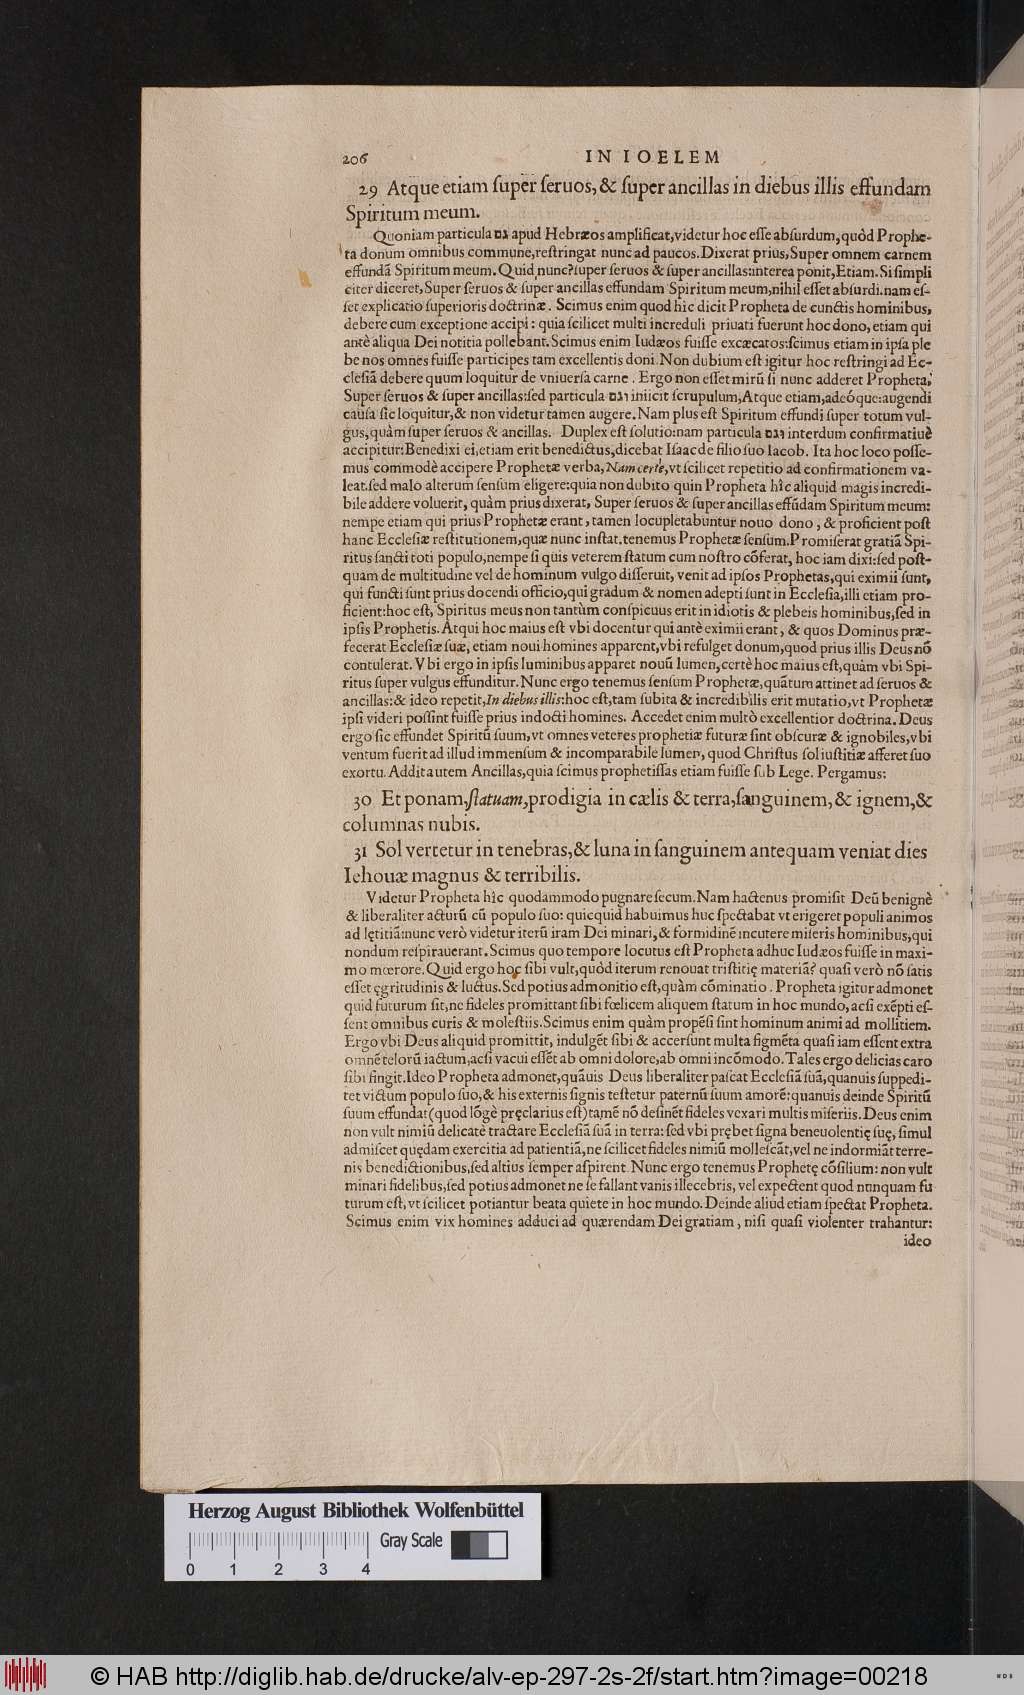 206 IN IOELEM
29 Atque etiam ſuper ſeruos, & ſuper ancillas in diebus illis effundam
Spiritum meum.
Quoniam particula גם apud Hebræos amplificat, videtur hoc eſſe abſurdum, quòd Prophe-
ta donum omnibus commune, reſtringat nunc ad paucos. Dixerat prius, Super omnem carnem
effundā Spiritum meum. Quid nunc? ſuper ſeruos & ſuper ancillas: interea ponit, Etiam. Si ſimpli
citer diceret, Super ſeruos & ſuper ancillas effundam Spiritum meum, nihil eſſet abſurdi. nam eſ-
ſet explicatio ſuperioris doctrinæ. Scimus enim quod hic dicit Propheta de cunctis hominibus,
debere cum exceptione accipi: quia ſcilicet multi increduli priuati fuerunt hoc dono, etiam qui
antè aliqua Dei notitia pollebant. Scimus enim Iudæos fuiſſe excæcatos: ſcimus etiam in ipſa ple
be nos omnes fuiſſe participes tam excellentis doni. Non dubium eſt igitur hoc reſtringi ad Ec-
cleſiā debere quum loquitur de vniuerſa carne. Ergo non eſſet mirū ſi nunc adderet Propheta,
Super ſeruos & ſuper ancillas: ſed particula וגם iniicit ſcrupulum, Atque etiam, adeóque: augendi
cauſa ſic loquitur, & non videtur tamen augere. Nam plus eſt Spiritum effundi ſuper totum vul-
gus, quàm ſuper ſeruos & ancillas. Duplex eſt ſolutio: nam particula וגם interdum confirmatiuè
accipitur: Benedixi ei, etiam erit benedictus, dicebat Iſaac de filio ſuo Iacob. Ita hoc loco poſſe-
mus commodè accipere Prophetæ verba, Nam certè, vt ſcilicet repetitio ad confirmationem va-
leat. ſed malo alterum ſenſum eligere: quia non dubito quin Propheta hîc aliquid magis incredi-
bile addere voluerit, quàm prius dixerat, Super ſeruos & ſuper ancillas effūdam Spiritum meum:
nempe etiam qui prius Prophetæ erant, tamen locupletabuntur nouo dono, & proficient poſt
hanc Eccleſiæ reſtitutionem, quæ nunc inſtat. tenemus Prophetæ ſenſum. Promiſerat gratiā Spi-
ritus ſancti toti populo, nempe ſi quis veterem ſtatum cum noſtro cōferat, hoc iam dixi: ſed poſt-
quam de multitudine vel de hominum vulgo diſſeruit, venit ad ipſos Prophetas, qui eximii ſunt,
qui functi ſunt prius docendi officio, qui gradum & nomen adepti ſunt in Eccleſia, illi etiam pro-
ficient: hoc eſt, Spiritus meus non tantùm conſpicuus erit in idiotis & plebeis hominibus, ſed in
ipſis Prophetis. Atqui hoc maius eſt vbi docentur qui antè eximii erant, & quos Dominus præ-
fecerat Eccleſiæ ſuæ, etiam noui homines apparent, vbi refulget donum, quod prius illis Deus nō
contulerat. Vbi ergo in ipſis luminibus apparet nouū lumen, certè hoc maius eſt, quàm vbi Spi-
ritus ſuper vulgus effunditur. Nunc ergo tenemus ſenſum Prophetæ, quātum attinet ad ſeruos &
ancillas: & ideo repetit, In diebus illis: hoc eſt, tam ſubita & incredibilis erit mutatio, vt Prophetæ
ipſi videri poſſint fuiſſe prius indocti homines. Accedet enim multò excellentior doctrina. Deus
ergo ſic effundet Spiritū ſuum, vt omnes veteres prophetiæ futuræ ſint obſcuræ & ignobiles, vbi
ventum fuerit ad illud immenſum & incomparabile lumen, quod Chriſtus ſol iuſtitiæ afferet ſuo
exortu. Addit autem Ancillas, quia ſcimus prophetiſſas etiam fuiſſe ſub Lege. Pergamus:
30 Et ponam, ſtatuam, prodigia in cælis & terra, ſanguinem, & ignem, &
columnas nubis.
31 Sol vertetur in tenebras, & luna in ſanguinem antequam veniat dies
Iehouæ magnus & terribilis.
Videtur Propheta hîc quodammodo pugnare ſecum. Nam hactenus promiſit Deū benignè
& liberaliter acturū cū populo ſuo: quicquid habuimus huc ſpectabat vt erigeret populi animos
ad lętitiā: nunc verò videtur iterū iram Dei minari, & formidinē incutere miſeris hominibus, qui
nondum reſpirauerant. Scimus quo tempore locutus eſt Propheta adhuc Iudæos fuiſſe in maxi-
mo mœrore. Quid ergo hoc ſibi vult, quòd iterum renouat triſtitię materiā? quaſi verò nō ſatis
eſſet ęgritudinis & luctus. Sed potius admonitio eſt, quàm cōminatio. Propheta igitur admonet
quid futurum ſit, ne fideles promittant ſibi fœlicem aliquem ſtatum in hoc mundo, acſi exēpti eſ-
ſent omnibus curis & moleſtiis. Scimus enim quàm propēſi ſint hominum animi ad mollitiem.
Ergo vbi Deus aliquid promittit, indulgēt ſibi & accerſunt multa figmēta quaſi iam eſſent extra
omnē telorū iactum, acſi vacui eſſēt ab omni dolore, ab omni incōmodo. Tales ergo delicias caro
ſibi fingit. Ideo Propheta admonet, quāuis Deus liberaliter paſcat Eccleſiā ſuā, quanuis ſuppedi-
tet victum populo ſuo, & his externis ſignis teſtetur paternū ſuum amorē: quanuis deinde Spiritū
ſuum effundat (quod lōgè pręclarius eſt) tamē nō deſinēt fideles vexari multis miſeriis. Deus enim
non vult nimiū delicatè tractare Eccleſiā ſuā in terra: ſed vbi prębet ſigna beneuolentię ſuę, ſimul
admiſcet quędam exercitia ad patientiā, ne ſcilicet fideles nimiū molleſcāt, vel ne indormiāt terre-
nis benedictionibus, ſed altius ſemper aſpirent. Nunc ergo tenemus Prophetę cōſilium: non vult
minari fidelibus, ſed potius admonet ne ſe fallant vanis illecebris, vel expectent quod nunquam fu
turum eſt, vt ſcilicet potiantur beata quiete in hoc mundo. Deinde aliud etiam ſpectat Propheta.
Scimus enim vix homines adduci ad quærendam Dei gratiam, niſi quaſi violenter trahantur:
ideo
Herzog August Bibliothek Wolfenbüttel
Gray Scale
0 1 2 3 4
© HAB http://diglib.hab.de/drucke/alv-ep-297-2s-2f/start.htm?image=00218